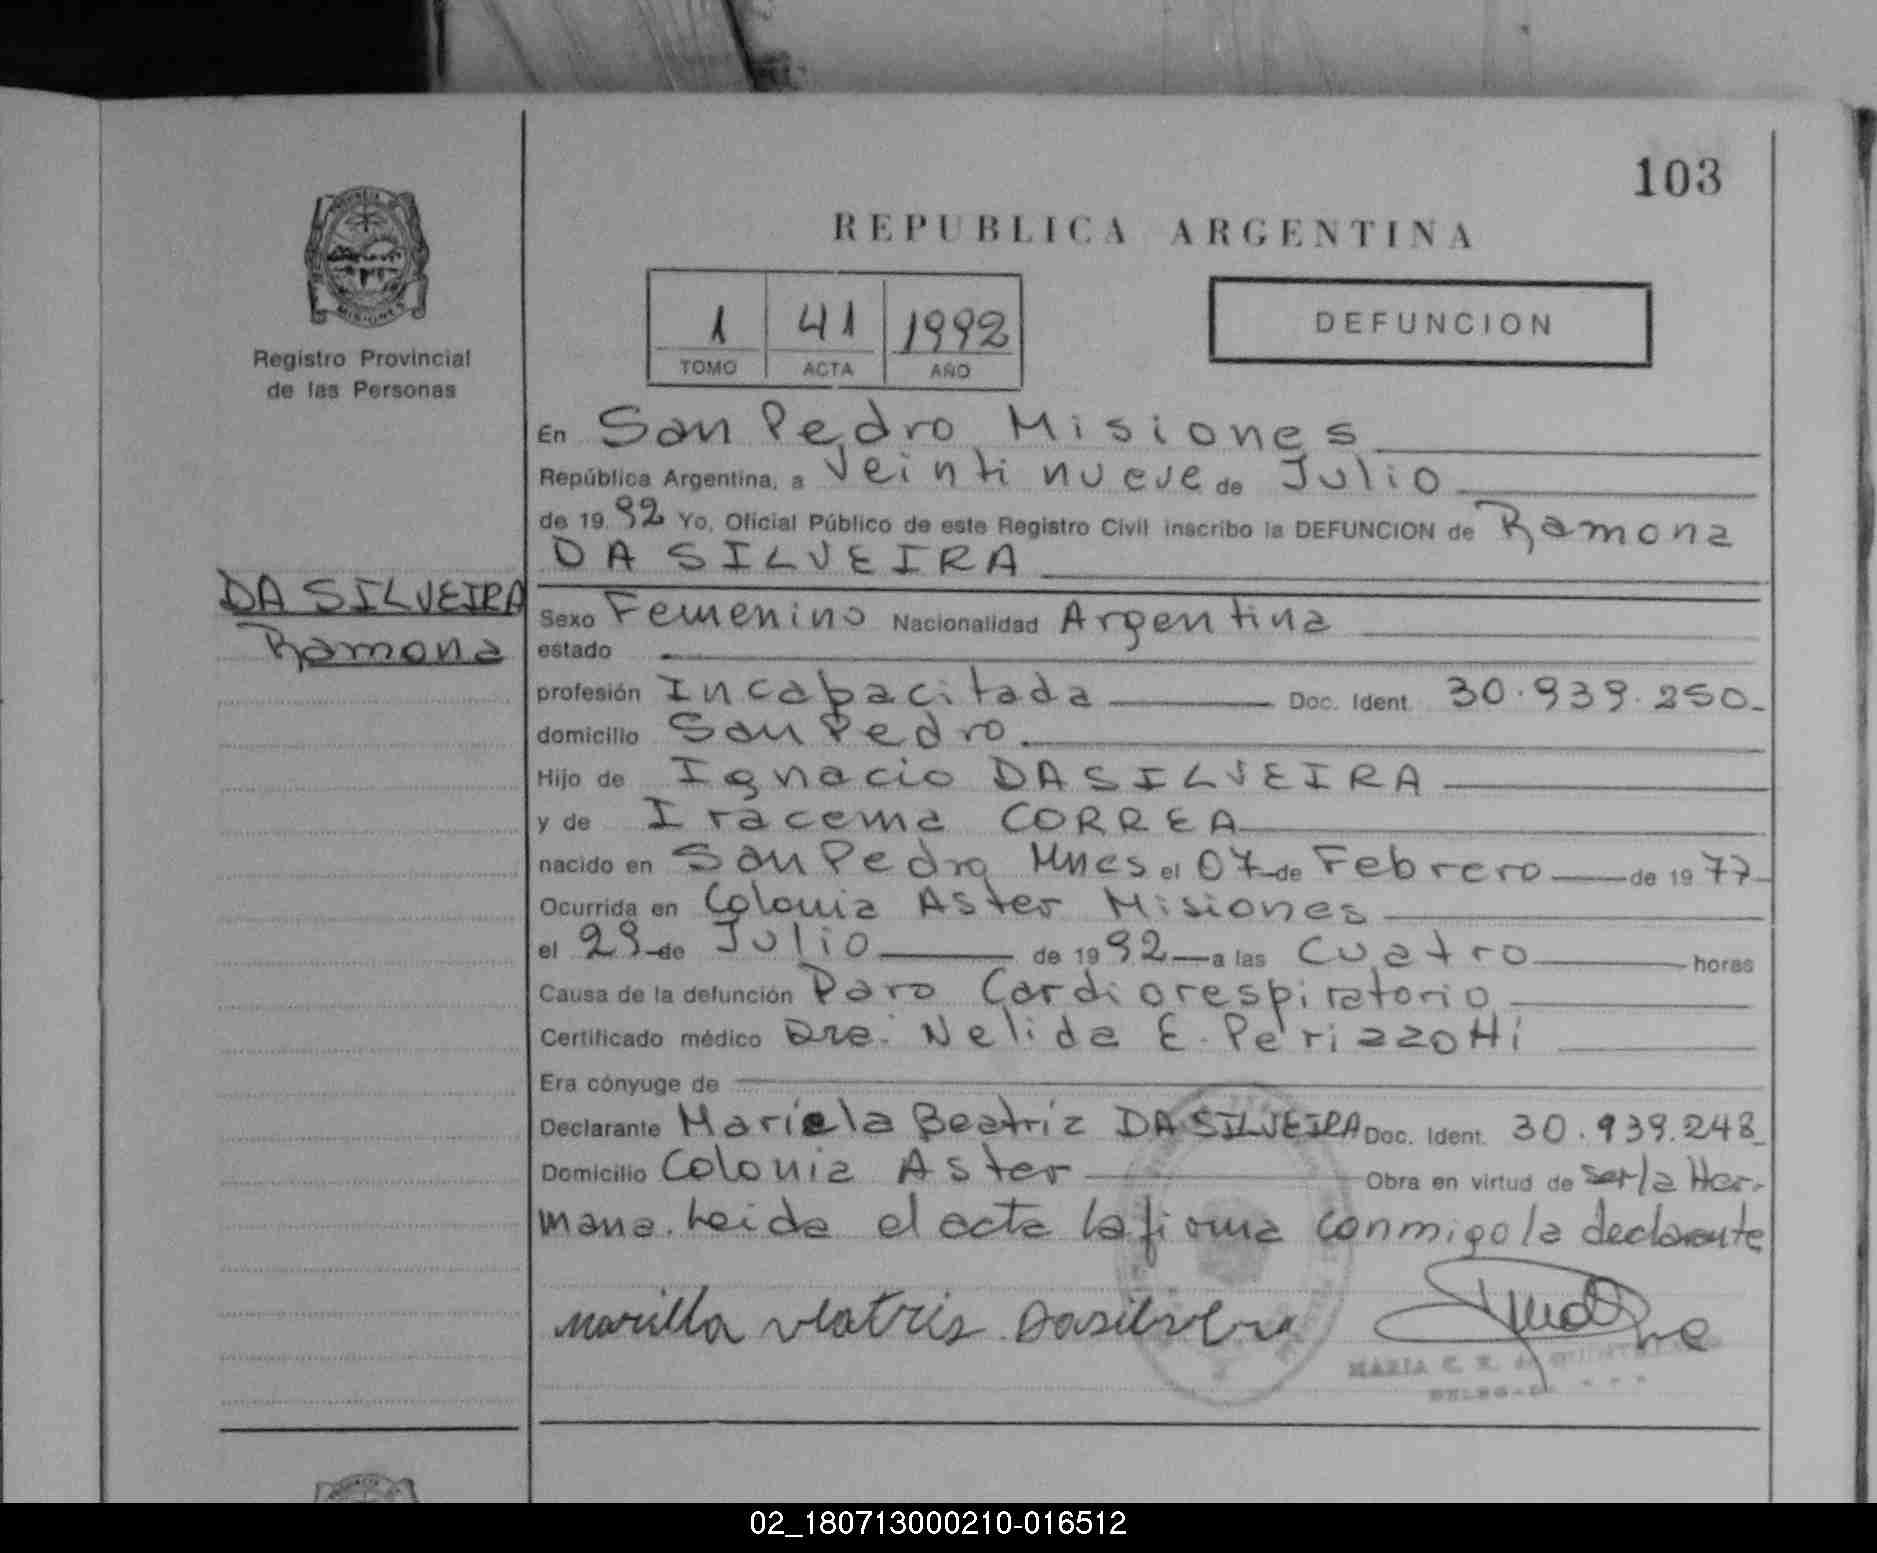 103
REPUBLICA ARGENTINA
MISIONES
Registro Provincial
de las Personas
1 41 1992
TOMO ACTA AÑO
DEFUNCION
En San Pedro Misiones
República Argentina, a Veinti nueve de Julio
de 1992 Yo, Oficial Público de este Registro Civil inscribo la DEFUNCION de Ramona
DA SILVEIRA
DA SILVEIRA
Ramona
Sexo Femenino Nacionalidad Argentina
estado
profesión Incapacitada Doc. Ident. 30.939.250
domicilio San Pedro
Hijo de Ignacio DA SILVEIRA
y de Iracema CORREA
nacido en San Pedro Mnes el 07 de Febrero de 1977
Ocurrida en Colonia Aster Misiones
el 29 de Julio de 1992 a las Cuatro horas
Causa de la defunción Paro Cardiorespiratorio
Certificado médico Dra. Nelida E. Perizzotti
Era cónyuge de
Declarante Mariela Beatriz DA SILVEIRA Doc. Ident. 30.939.248
Domicilio Colonia Aster Obra en virtud de ser la Her-
mana. Leida el acta la firma conmigo la declarante
Marilla veatris Dasilvera
MARIA C. R. de
02_180713000210-016512